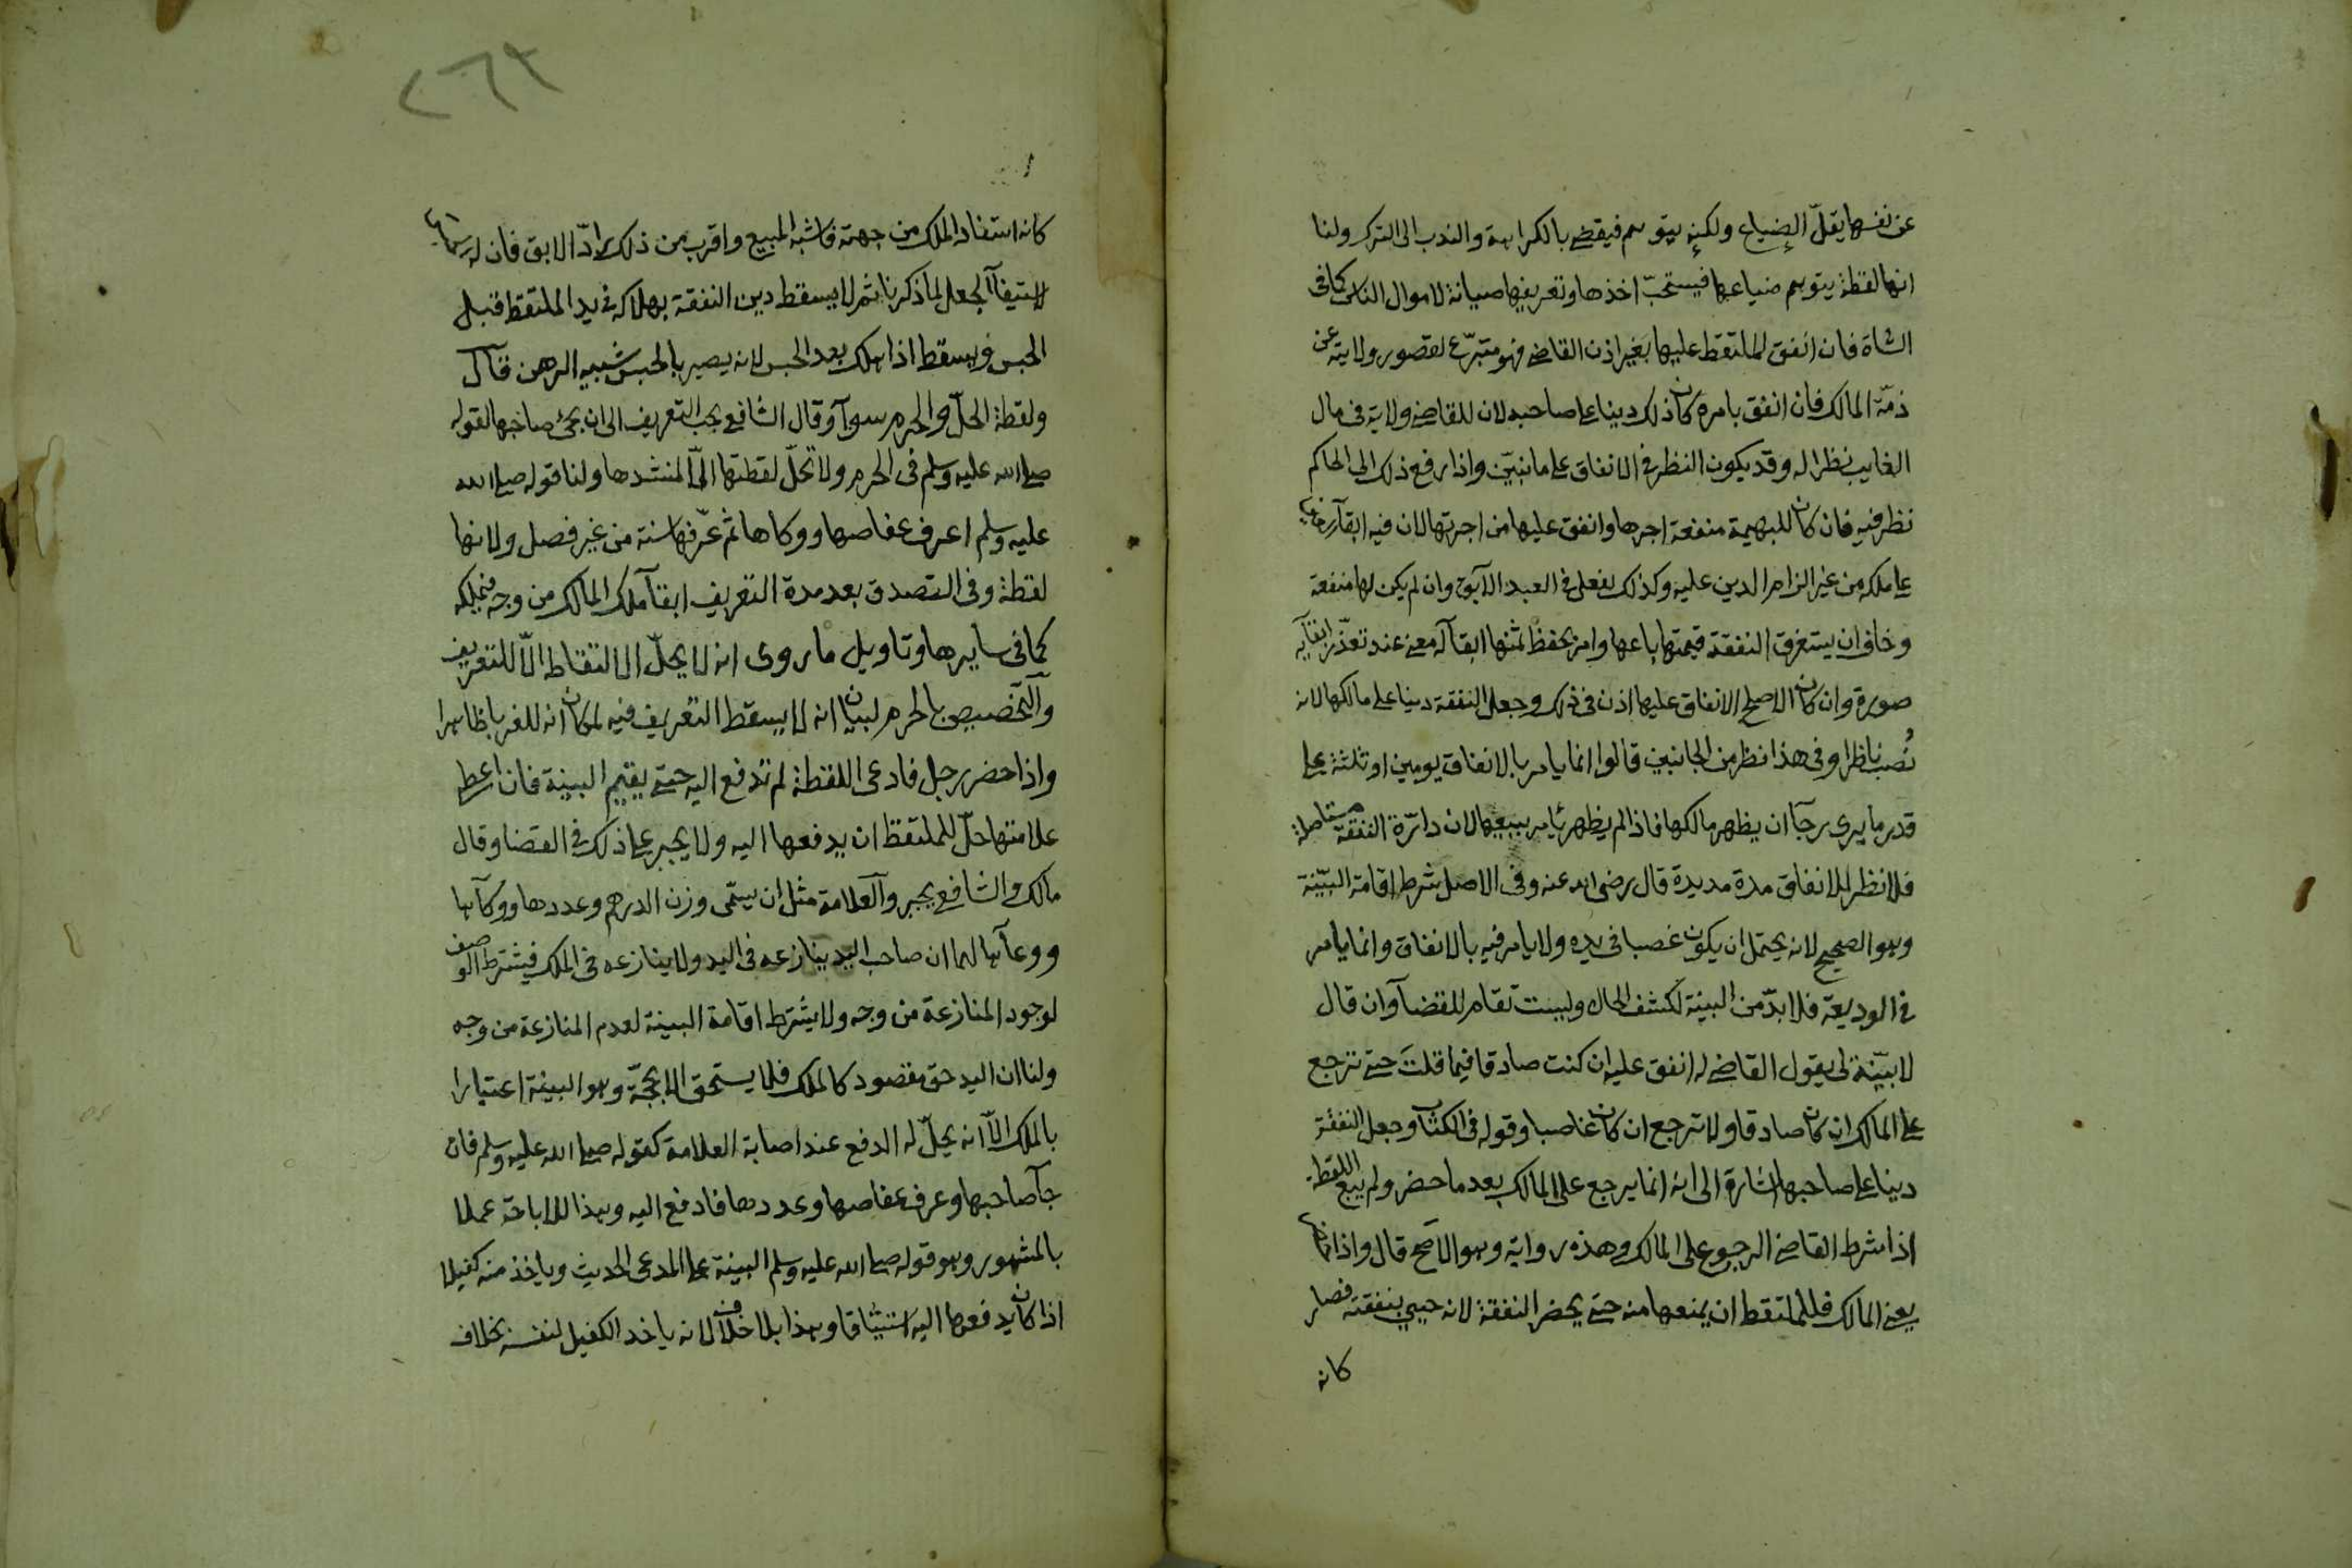 عن نفسها يقلّ الضياع ولكنه يتوهم فيقضى بالكراهة والندب الى الترك ولنا
انها لقطة يتوهم ضياعها فيستحبّ اخذها وتعريفها صيانة لاموال الناس كما فى
الشاة فان انفق الملتقط عليها بغير اذن القاضى فهو متبرّع لقصور ولايته عن
ذمّة المالك فان انفق بامره كان ذلك دينا على صاحبه لان للقاضى ولاية فى مال
الغايب نظرا له وقد يكون النظر فى الانفاق على ما نبيّن واذا رفع ذلك الى الحاكم
نظر فيه فان كان للبهيمة منفعة اجرها وانفق عليها من اجرتها لان فيه ابقآء
على ملكه من غير الزام الدين عليه وكذلك يفعل فى العبد الآبق وان لم يكن لها منفعة
وخاف ان يستغرق النفقة قيمتها باعها وامر بحفظ ثمنها ابقآ له معنى عند تعذّر ابقآيه
صورة وان كان الاصلح الانفاق عليها اذن فى ذلك وجعل النفقة دينا على مالكها لانه
نُصب ناظرا وفى هذا نظر من الجانبين قالوا انما يامر بالانفاق يومين او ثلثة على
قدر ما يرى رجآ ان يظهر مالكها فاذا لم يظهر يأمر ببيعها لان دارّة النفقة مستأصلة
فلا نظر للانفاق مدة مديدة قال رضى الله عنه وفى الاصل شرط اقامة البيّنة
وهو الصحيح لانه يحتمل ان يكون غصبا فى يده ولا يامر فيه بالانفاق وانما يامر
فى الوديعة فلا بدّ من البينة لكشف الحال وليست تقام للقضآ وان قال
لا بيّنة لى يقول القاضى له انفق عليه ان كنت صادقا فيما قلتَ حتى ترجع
على المالك ان كان صادقا ولا ترجع ان كان غاصبا وقوله فى الكتاب وجعل النفقة
دينا على صاحبها اشارة الى انه انما يرجع على المالك بعد ما حضر ولم يبع اللقطة
اذا شرط القاضى الرجوع على المالك وهذه رواية وهو الاصح قال واذا
يعنى المالك فللملتقط ان يمنعها منه حتى يحضر النفقة لانه حيى بنفقته فصار
كانه
٢٦٣
كانه استفاد الملك من جهته فاشبه المبيع واقرب من ذلك رادّ الابق فان له
لاستيفآ الجعل لما ذكرنا ثم لا يسقط دين النفقة بهلاكه فى يد الملتقط قبل
الحبس ويسقط اذا هلك بعد الحبس لانه يصير بالحبس شبيه الرهن قال
ولقطة الحلّ والحرم سوآ وقال الشافعى يجب التعريف الى ان يجئ صاحبها لقوله
صلى الله عليه وسلم فى الحرم ولا تحلّ لقطتها الّا لمنشدها ولنا قوله صلى الله
عليه وسلم اعرف عفاصها ووكاها ثم عرّفها سنة من غير فصل ولانها
لقطة وفى التصدق بعد مدة التعريف ابقآ ملك المالك من وجه فيملكه
كما فى سايرها وتاويل ما روى انه لا يحلّ الالتقاط الّا للتعريف
والتخصيص بالحرم لبيان انه لا يسقط التعريف فيه لمكان انه للغربا ظاهرا
واذا حضر رجل فادعى اللقطة لم تدفع اليه حتى يقيم البينة فان اعطى
علامتها حلّ للملتقط ان يدفعها اليه ولا يجبر على ذلك فى القضا وقال
مالك والشافعى يجبر والعلامة مثل ان يسمّى وزن الدرهم وعددها ووكآها
ووعآها لهما ان صاحب اليد ينازعه فى اليد ولا ينازعه فى الملك فيشترط الوصف
لوجود المنازعة من وجه ولا يشترط اقامة البينة لعدم المنازعة من وجه
ولنا ان اليد حق مقصود كالملك فلا يستحق الا بحجّة وهو البينة اعتبارا
بالملك الّا انه يحلّ له الدفع عند اصابة العلامة كقوله صلى الله عليه وسلم فان
جآ صاحبها وعرف عفاصها وعددها فادفع اليه وهذا للاباحة عملا
بالمشهور وهو قوله صلى الله عليه وسلم البينة على المدعى الحديث وياخذ منه كفيلا
اذا كان يدفعها اليه استيثاقا وهذا بلا خلاف لانه ياخد الكفيل لنفسه بخلاف